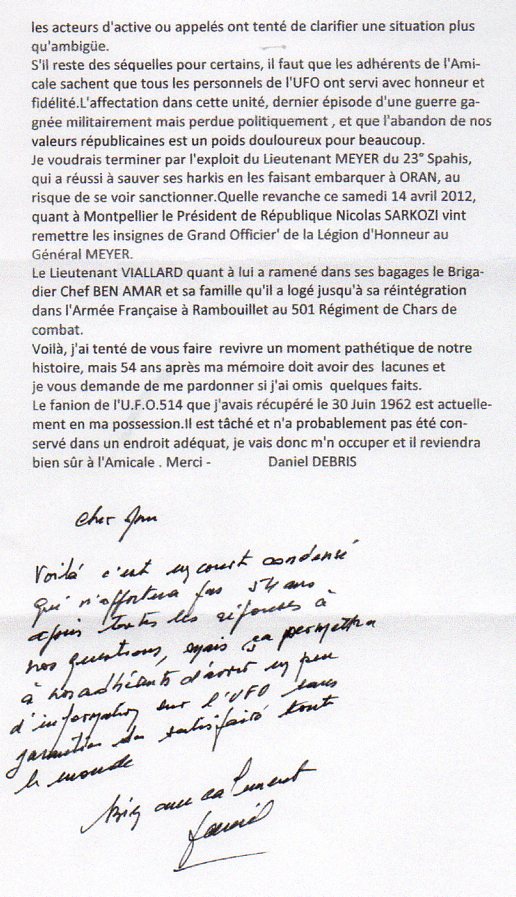 les acteurs d'active ou appelés ont tenté de clarifier une situation plus
qu'ambigüe.
S'il reste des séquelles pour certains, il faut que les adhérents de l'Ami-
cale sachent que tous les personnels de l'UFO ont servi avec honneur et
fidélité.L'affectation dans cette unité, dernier épisode d'une guerre ga-
gnée militairement mais perdue politiquement , et que l'abandon de nos
valeurs républicaines est un poids douloureux pour beaucoup.
Je voudrais terminer par l'exploit du Lieutenant MEYER du 23° Spahis,
qui a réussi à sauver ses harkis en les faisant embarquer à ORAN, au
risque de se voir sanctionner.Quelle revanche ce samedi 14 avril 2012,
quant à Montpellier le Président de République Nicolas SARKOZI vint
remettre les insignes de Grand Officier' de la Légion d'Honneur au
Général MEYER.
Le Lieutenant VIALLARD quant à lui a ramené dans ses bagages le Briga-
dier Chef BEN AMAR et sa famille qu'il a logé jusqu'à sa réintégration
dans l'Armée Française à Rambouillet au 501 Régiment de Chars de
combat.
Voilà, j'ai tenté de vous faire revivre un moment pathétique de notre
histoire, mais 54 ans après ma mémoire doit avoir des lacunes et
je vous demande de me pardonner si j'ai omis quelques faits.
Le fanion de l'U.F.O.514 que j'avais récupéré le 30 Juin 1962 est actuelle-
ment en ma possession.Il est tâché et n'a probablement pas été con-
servé dans un endroit adéquat, je vais donc m'n occuper et il reviendra
bien sûr à l'Amicale . Merci - Daniel DEBRIS
Cher
Voilà c'est un court condensé
qui n'apportera pas 54 ans
après toutes les réponses à
nos questions, mais ça permettra
à nos adhérents d'avoir un peu
d'information sur l'UFO sans
satisfaire tout
le monde
Bien amicalement
Daniel